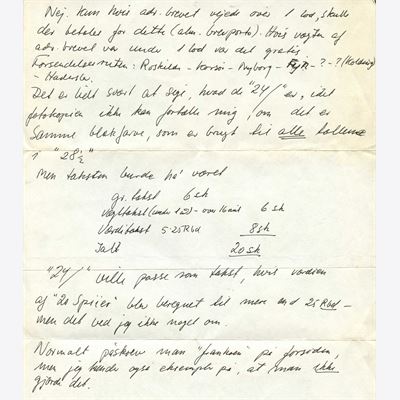 Nej. kun hvis adr. brevet vejede over 1 lod, skulle
der betales for dette (alm. brevporto). Hvis vægten af
adr. brevet var under 1 lod var det gratis
Forsendelsesruten: Roskilde - Korsør - Nyborg - Fyn - ? - ? (Kolding)
- Haderslev.
Det er lidt svært at sige, hvad de "24/" er, idet
fotokopien ikke kan fortælle mig, om det er
samme blækfarve, som er brugt til alle tallene
i "28½"
Men taksten burde ha' været
gr. takst 6 sk
Vægttakst (under 1 ) - over 16 mil 6 sk
Værditakst 5-25 Rbd 8 sk
Ialt 20 sk
"24/" ville passe som takst, hvis værdien
af "20 Speier" blev beregnet til mere end 25 Rbd -
men det ved jeg ikke noget om.
Normalt påskrev man "franko" på forsiden,
men jeg kender også eksempler på, at man ikke
gjorde det.